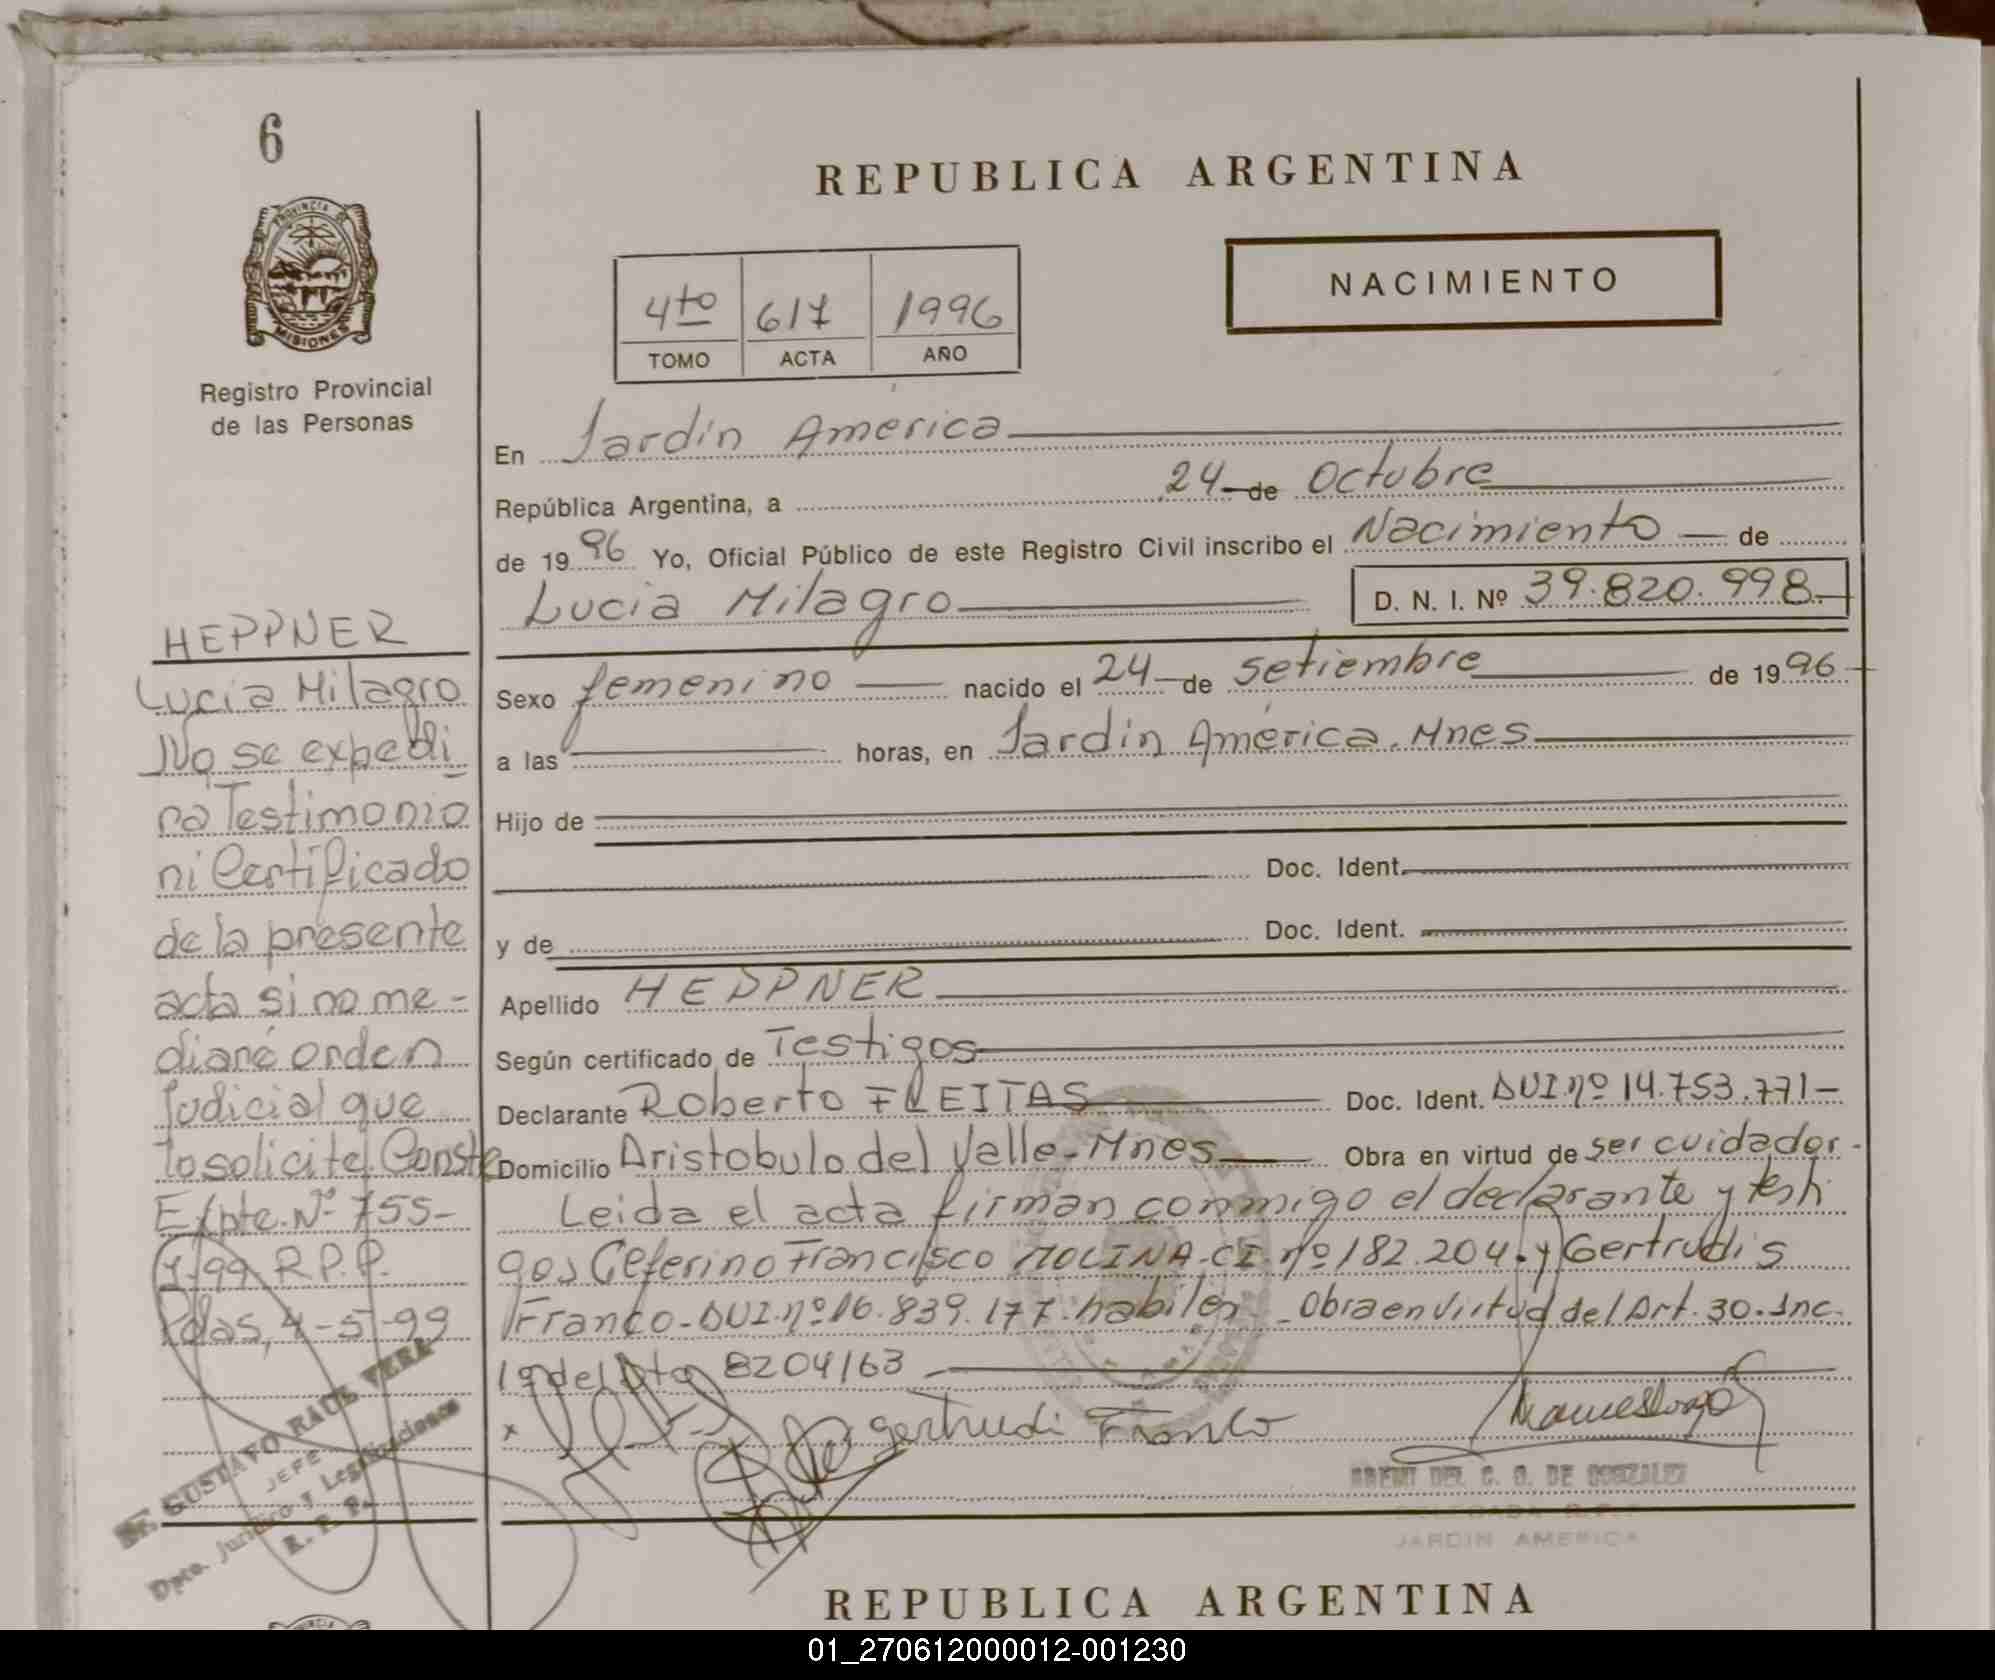 6
REPUBLICA ARGENTINA
PROVINCIA DE
MISIONES
Registro Provincial
de las Personas
4to 617 1996
TOMO ACTA AÑO
NACIMIENTO
En Jardin America
República Argentina, a 24 de Octubre
de 1996 Yo, Oficial Público de este Registro Civil inscribo el Nacimiento de
Lucia Milagro D. N. I. Nº 39.820.998
Sexo femenino nacido el 24 de setiembre de 1996
a las horas, en Jardin América. Mnes
Hijo de
Doc. Ident.
y de Doc. Ident.
Apellido HEPPNER
Según certificado de Testigos
Declarante Roberto FLEITAS Doc. Ident. DUI nº 14.753.771-
Domicilio Aristobulo del Valle-Mnes Obra en virtud de ser cuidador-
Leida el acta firman conmigo el declarante y testi
gos Ceferino Francisco MOLINA-CI.nº 182.204. y Gertrudis
Franco-DUI.nº 16.839.177.habiles-Obra en virtud del Art.30.Inc.
1º del Dto 8204/63
x gertrudi Franco
DEL C. G. DE GONZALEZ
DELEGADA R.P.P.
JARDIN AMERICA
HEPPNER
Lucia Milagro
No se expedi
ra Testimonio
ni Certificado
de la presente
acta si no me-
diaré orden
Judicial que
lo solicite. Conste
Expte. Nº 755-
J-99 R.P.P.
Pdas, 4-5-99
Dr. GUSTAVO RAUL VERA
JEFE
Dpto. Jurídico y Legalizaciones
R. P. P.
REPUBLICA ARGENTINA
01_270612000012-001230